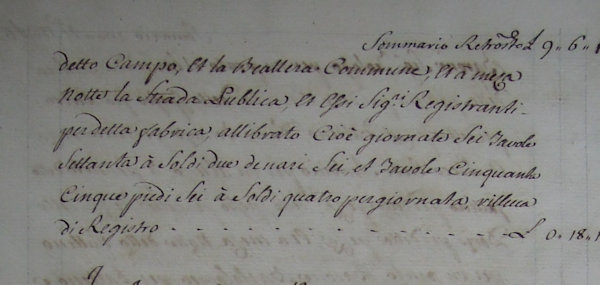 Sommario Retrosto £ 9" 6"1
detto Campo, et la Beallera Commune, et a meza
notte la Strada Publica, et essi Sigri Registranti
per detta fabrica, allibrato Cioè giornate Sei Tavole
Settanta à Soldi due denari Sei, et Tavole Cinquanta
Cinque piedi Sei à Soldi quatro per giornata, rilleva
di Registro - - - - - - - - - - - £ 0" 18"1